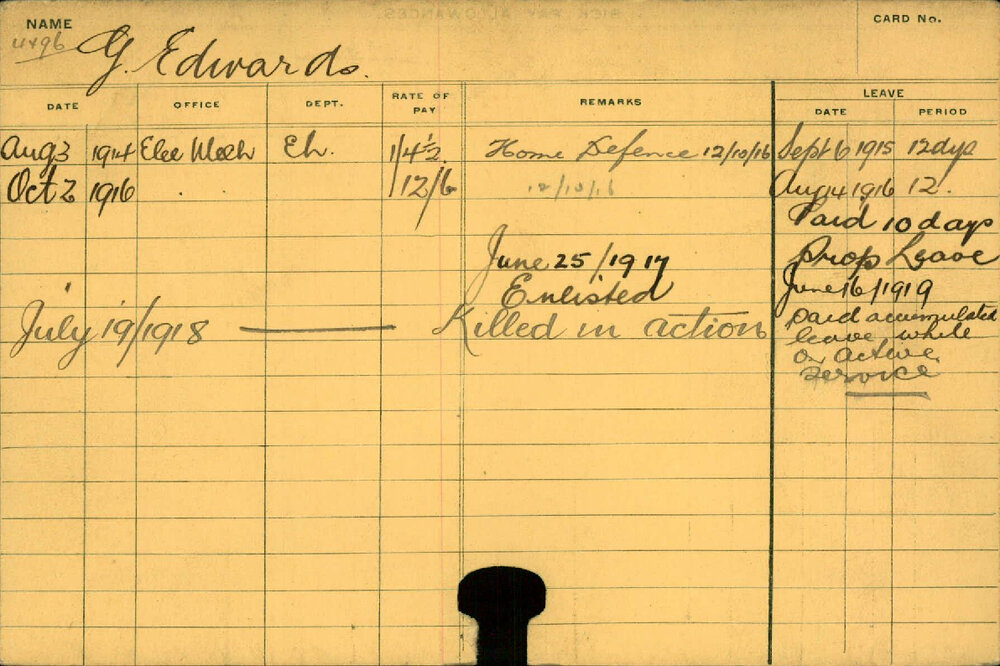 NAME
CARD No.
G. Edwards.
DATE OFFICE DEPT. RATE OF PAY REMARKS LEAVE
DATE PERIOD
Aug 3 1914 Elec Mech Eh. 1/4½. Home Defence 12/10/16 Sept 6 1915 12 dys
Oct 2 1916 1/12/6 12/10/16 Aug 14 1916 12.
Paid 10 days
June 25/1917 Prop Leave
Enlisted June 16/1919
July 19/1918 Killed in action paid accumulated
leave while
on active
service